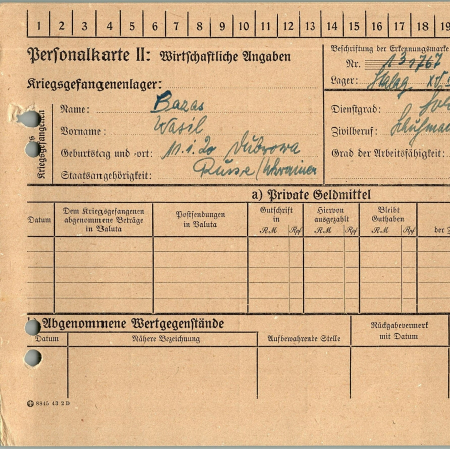 1 2 3 4 5 6 7 8 9 10 11 12 13 14 15 16 17 18 19
Personalkarte II: Wirtschaftliche Angaben
Beschriftung der Erkennungsmarke
Nr. 131767
Lager: Stalag
Kriegsgefangenenlager:
Des Kriegsgefangenen
Name: Bazas
Vorname: Wasil
Geburtstag und -ort: 11.1.20 Dubrowa
Staatsangehörigkeit: Russe/Ukrainer
Dienstgrad: Sol
Zivilberuf:
Grad der Arbeitsfähigkeit:
a) Private Geldmittel
Datum
Dem Kriegsgefangenen abgenommene Beträge in Valuta
Postsendungen in Valuta
Gutschrift in
RM Rpf
Hiervon ausgezahlt
RM Rpf
Bleibt Guthaben
RM Rpf
der
b) Abgenommene Wertgegenstände
Datum
Nähere Bezeichnung
Aufbewahrende Stelle
Rückgabevermerk mit Datum
8845 43 2 D